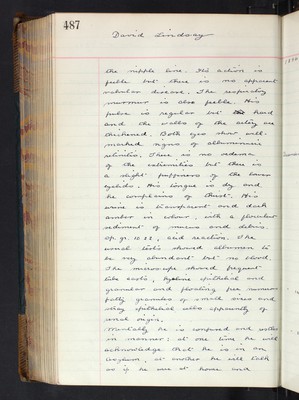 487
David Lindsay
the nipple line. His action is
feeble but there is no apparent
valvular disease. The respiratory
murmur is also feeble. His
pulse is regular but hard
and the walls of the artery are
thickened. Both eyes show well
marked signs of albuminuric
retinitis. There is no oedema
of the extremities but there is
a slight puffiness of the lower
eyelids. His tongue is dry and
he complains of thirst. His
urine is transparent and dark
amber in colour, with a flocculent
sediment of mucus and debris.
sp. gr. 1022, acid reaction. The
usual tests showed albumen to
be very abundant but no blood.
The microscope showed frequent
tube casts, hyaline epithelial and
granular and floating free numerous
fatty granules of small sizes and
stray epithelial cells apparently of
renal origin.
Mentally he is confused and
in manner; at one time he will
acknowledge that he is in an
Asylum, at another he will talk
as if he were at home and